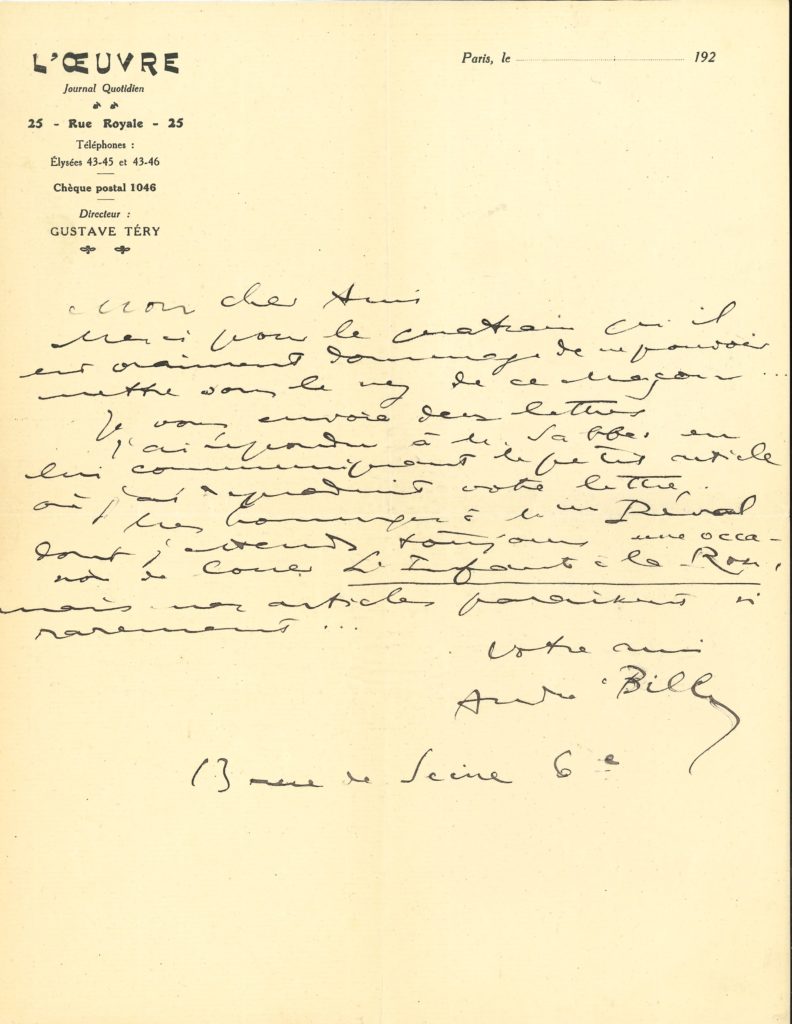 L'ŒUVRE
Journal Quotidien
25 - Rue Royale - 25
Téléphones :
Élysées 43-45 et 43-46
Chèque postal 1046
Directeur :
GUSTAVE TÉRY
Paris, le 192
Mon cher Ami
Merci pour le quatrain qu'il
est vraiment dommage de ne pouvoir
mettre sous le nez de ce Maçon ...
Je vous envoie deux lettres
J'ai répondu à M. Sabbe en
lui communiquant le petit article
où j'ai reproduit votre lettre.
Mes hommages à Mme Réval
dont j'attends toujours une occa-
de L'Infante à la Rose,
mais nos articles paraissent si
rarement ...
Votre ami
André Billy
13 rue de Seine 6e